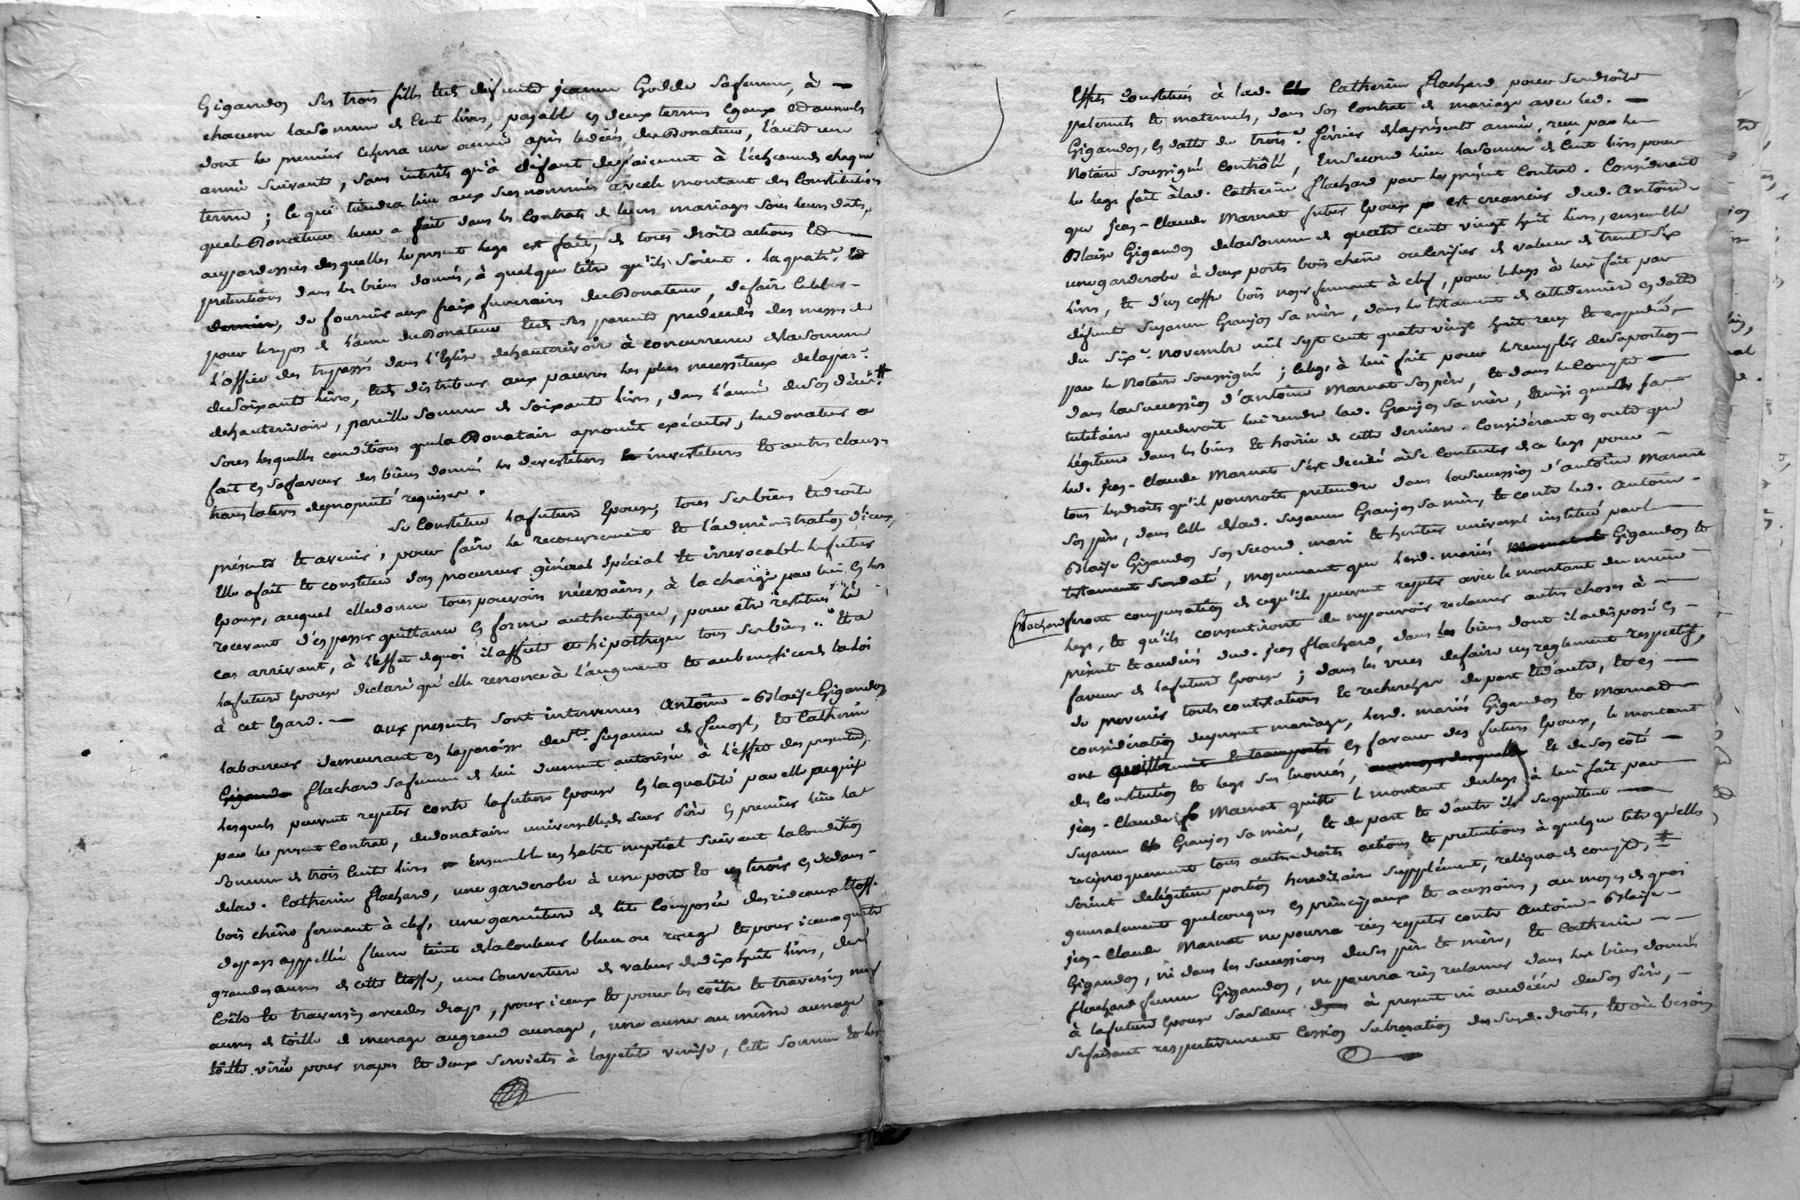 Gigandon ses trois filles et de defunte jeanne Godde sa femme, à
chacune la somme de Cent livres, payable en deux termes Egaux et annuels
dont le premier Echerra une année après le décès du Donateur, l'autre une
année suivante, sans interêts qu'à défaut de paiement à l'échéance de chaque
terme ; ce qui tiendra lieu aux susnommés avec le montant des Constitutions
que le Donateur leur a fait dans les Contrats de leurs mariages sous leurs dates,
au pardessus desquelles le present legs est fait, de tous droits actions et
prétentions dans les biens donnés, à quelque titre qu'ils soient. la quatr.e et
derniere, de fournir aux fraix funeraires du Donateur, de faire celebrer
pour le repos de l'ame du Donateur et de ses parents predecedés des messes de
l'office des trepassés dans l'Eglise de hauterivoire à concurrence de la somme
de soixante livres, et de distribuer aux pauvres les plus necessiteux de la par.e
de hauterivoire, pareille somme de soixante livres, dans l'année de son décès #
sous lesquelles conditions que la Donataire a promit exécuter, le donateur a
fait en sa faveur des biens donnés les devestitures investitures et autres clauses
translatives de proprieté requises.
Se Constitue la future Epouse, tous ses biens et droits
présents et avenir, pour faire le recouvrement et l'administration d'iceux,
Elle a fait et constitue son procureur général spécial et irrevocable le futur
Epoux, auquel elle donne tous pouvoirs nécessaires, à la charge par lui en les
recevant d'en passer quittance en forme authentique, pour etre restitués le
cas arrivant, à l'effet de quoi il affecte et hipothéque tous ses biens. et a
la future Epouse declaré qu'elle renonce à l'augment et au benefice de la loi
à cet Egard. aux presents sont intervenus Antoine-Blaise Gigandon
laboureur demeurant en la paroisse de Ste Suzanne de et Catherine
flachard sa femme de lui duement autorisée à l'effet des presentes,
lesquels peuvent repeter contre la future Epouse en la qualité par elle acquise
par le present Contrat, de donataire universelle de leur Père en premier lieu la
somme de trois cent livres ensemble un habit nuptial suivant la condition
de lad. Catherine flachard, une garderobe à une porte et un tiroir en dedans
bois chêne fermant à clef, une garniture de lit Composée des rideaux étoffe
du pays appellée fleuret teint de la couleur bleue ou rouge et pour iceux quatre
grandes aunes de cette étoffe, une Couverture de valeur de dix huit livres, de
Coëtte et traversin avec des draps, pour iceux et pour les coëtte et traversin neuf
aunes de toille de menage au grand aunage, une aune au même aunage
toille virée pour napes et deux serviettes à la petite venise, cette somme et les
Effets Constitués à lad. Catherine flachard, pour ses droits
paternels et maternels, dans son Contrat de mariage avec led.
Gigandon, en datte du trois.e février de la présente année, reçu par le
Notaire soussigné Contrôlé, En second lieu la somme de Cent livres pour
le legs fait à lad. Catherine flachard par le présent Contrat. Considerant
que jean-Claude Marnat futur Epoux est creancier dud. Antoine
Blaise Gigandon de la somme de quatre cents vingt huit livres, ensemble
une garderobe à deux portes bois chêne ou cerisier de valeur de trente six
livres, et d'un coffre bois noyer fermant à clef, pour le legs à lui fait par
défunte Suzanne Granjon sa mère, dans le testament de cette derniere en datte
du six.e novembre mil sept cent quatre vingt huit reçu et expedié,
par le Notaire soussigné ; le legs à lui fait pour le remplir de sa portion
dans la succession d'antoine Marnat son père, et dans le Compte
tutelaire que devoit lui rendre lad. Granjon sa mère, ainsi que de sa
légitime dans les biens et hoirie de cette derniere. Considérant en outre que
led. jean-Claude Marnat s'est décidé à se contenter de ce legs pour
tous les droits qu'il pourroit pretendre dans la succession d'antoine Marnat
son père, dans celle de lad. Suzanne Granjon sa mère, et contre led. Antoine
Blaise Gigandon son second mari et heritier universel institué par le
testament surdaté, moyennant que lesd. mariés Gigandon et
flachard feront compensation de ce qu'ils peuvent repeter avec le montant du même
legs, et qu'ils consentiront de ne pouvoir reclamer autres choses à
présent et au décès dud. jean flachard, dans les biens dont il a disposé en
faveur de la future Epouse ; dans les vues de faire un reglement respectif,
de prevenir toutes contestations et recherches de part et d'autre, et en
considération du present mariage, lesd. mariés Gigandon et Marnat
ont en faveur des futurs Epoux, le montant
des Constitution et legs sus Enoncés, et de son côté
jean-Claude Marnat quitte le montant du legs à lui fait par
Suzanne Granjon sa mère, et de part et d'autre ils se quittent
reciproquement tous autres droits actions et pretentions à quelque titre qu'elles
soient de légitime portion hereditaire supplément, reliqua de compte, #
generalement quelconques en principaux et accessoires, au moyen de quoi
jean-Claude Marnat ne pourra rien repeter contre Antoine-Blaise
Gigandon, ni dans les successions de ses père et mère, et Catherine
flachard femme Gigandon, ne pourra rien reclamer dans les biens donnés
à la future Epouse sa soeur à present ni au décès de son Père,
se faisant respectivement Cession subrogation des susd. droits, et où besoin